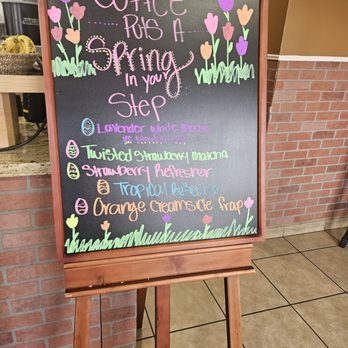 Puts A
Spring
in your
Step
Lavender White Mocha
Twisted Strawberry Matcha
Strawberry Refresher
Tropical
Orange Creamsicle Frap